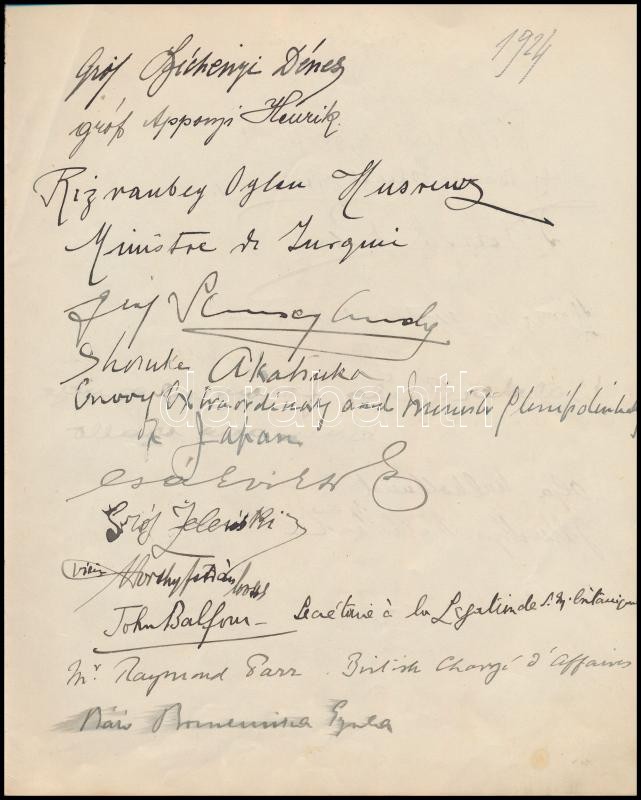 1924
Gróf Széchenyi Dénes
gróf Apponyi Henrik
Rizvanbey Oglou Husrew
Ministre de Turquie
gróf
Shosuke Akatsuka
Envoy Extraordinary and Minister Plenipotentiary
of Japan
darabanth
Gróf Zelenski
vitéz Horthy István lovas
John Balfour - Secrétaire à la Légation de S. M. britannique
Mr Raymond Parr. British Chargé d'Affaires
Báró Bornemisza Gyula